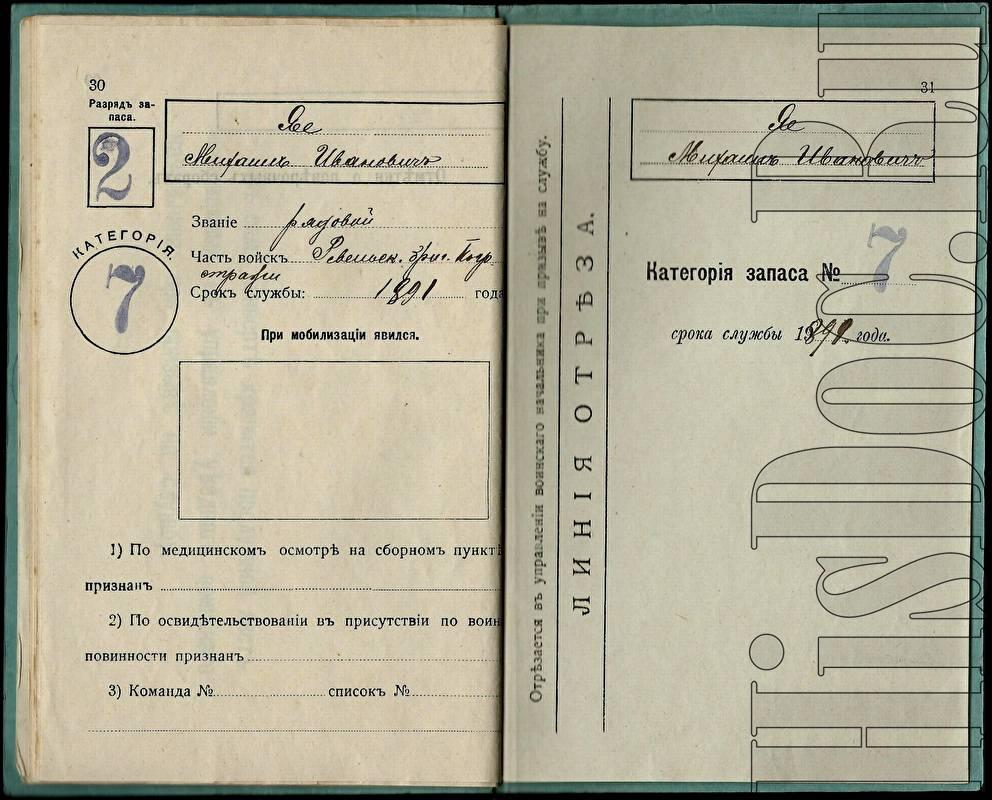 30
Разрядъ за-
паса.
2
КАТЕГОРІЯ
7
Яе
Михаилъ Ивановичъ
Званіе рядовой
Часть войскъ Ревельск. бриг. Погр.
стражи
Срокъ службы: 1891 года
При мобилизаціи явился.
1) По медицинскомъ осмотрѣ на сборномъ пунктѣ
признанъ
2) По освидѣтельствованіи въ присутствіи по воин
повинности признанъ
3) Команда № списокъ №
Отрѣзается въ управленіи воинскаго начальника при призывѣ на службу.
ЛИНІЯ ОТРѢЗА.
31
Яе
Михаилъ Ивановичъ
Категорія запаса № 7
срока службы 1891 года.
HisDoc.ru